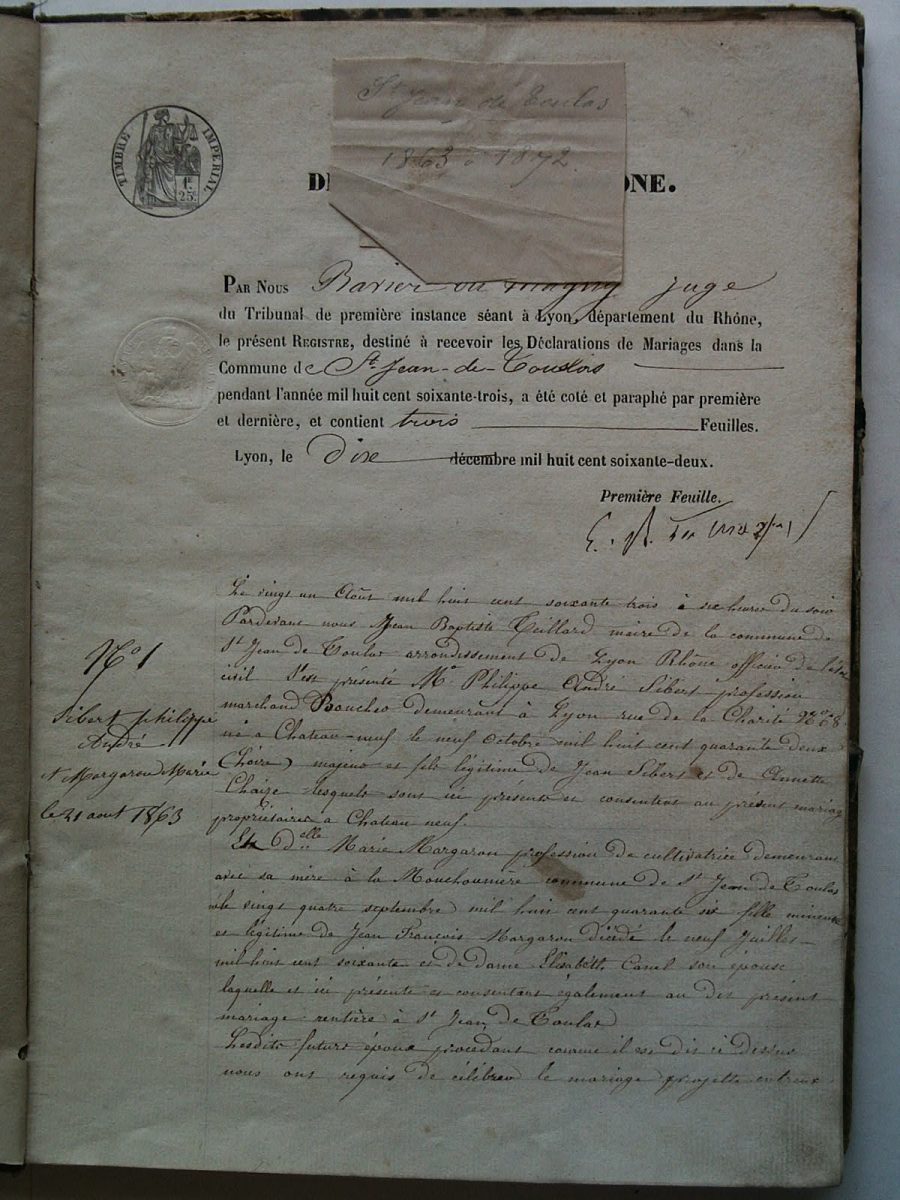 St Jean de Toulas
1863 à 1872
TIMBRE IMPERIAL
1F
25C
DÉ
ONE.
PAR NOUS juge
du Tribunal de première instance séant à Lyon, département du Rhône,
le présent REGISTRE, destiné à recevoir les Déclarations de Mariages dans la
Commune de St Jean-de-Toulas
pendant l'année mil huit cent soixante-trois, a été coté et paraphé par première
et dernière, et contient trois Feuilles.
Lyon, le dix décembre mil huit cent soixante-deux.
Première Feuille.
Le vingt un Août mil huit cent soixante trois à six heures du soir
Pardevant nous Jean Baptiste maire de la commune de
St Jean de Toulas arrondissement de Lyon Rhône officier de l'état
civil s'est présenté Mr Philippe André Sibert profession
marchand Boucher demeurant à Lyon rue de la Charité No 68
né a Chateau-neuf le neuf octobre mil huit cent quarante deux
(Loire) majeur et fils légitime de Jean Sibert et de Annette
Chaize lesquels sont ici presents et consentent au présent mariage
propriétaires a Chateau neuf.
Et delle Marie Margaron profession de cultivatrice demeurant
avec sa mère à la Mouchonnière commune de St Jean de Toulas
née le vingt quatre septembre mil huit cent quarante six fille mineure
et légitime de Jean François Margaron décédé le neuf Juillet
mil huit cent soixante et de dame Elisabeth Canel son épouse
laquelle est ici présente et consentant également au dit présent
mariage rentière à St Jean de Toulas
Lesdits futurs époux procédant comme il est dit ci dessus
nous ont requis de célébrer le mariage projetté entreux
No 1
Sibert philippe
André
et Margaron Marie
le 21 aout 1863